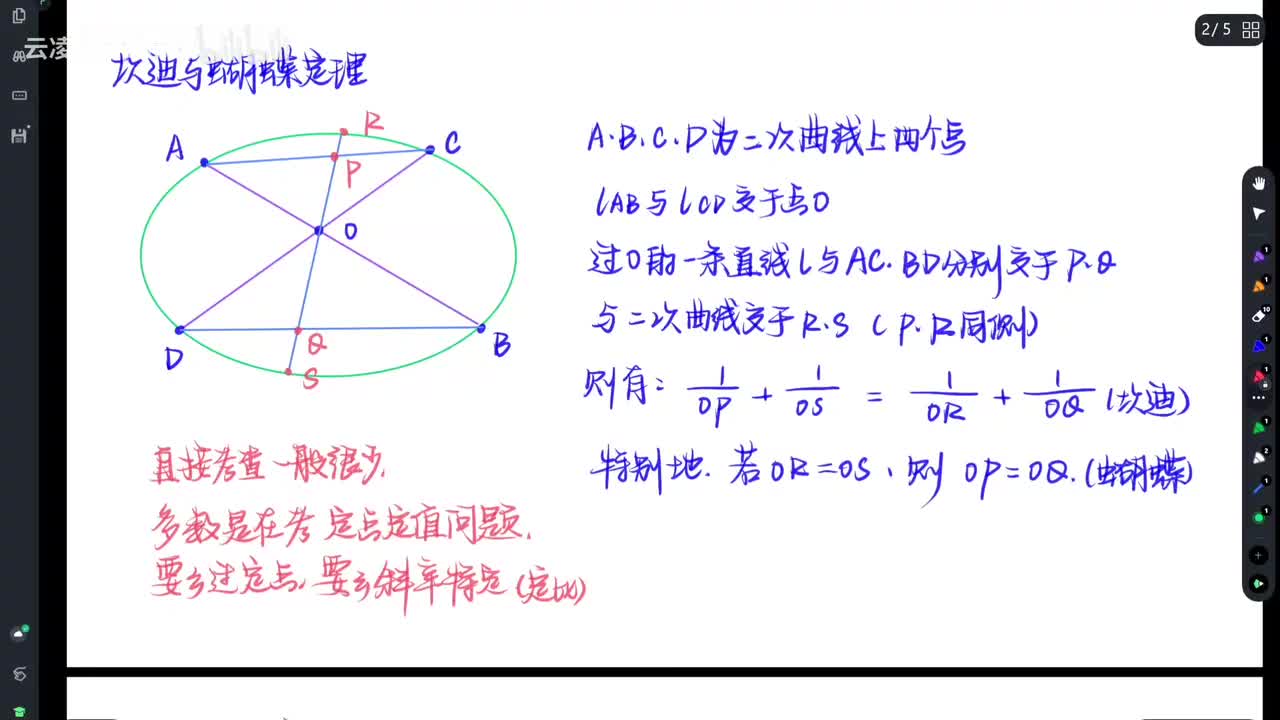 2/5
云凌
坎迪与蝴蝶定理
A
R
C
P
O
D
Q
B
S
A.B.C.D为二次曲线上四个点
lAB与lCD交于点O
过O的一条直线l与AC.BD分别交于P.Q
与二次曲线交于R.S (P.R同侧)
则有: 1/OP + 1/OS = 1/OR + 1/OQ (坎迪)
特别地. 若OR=OS、则 OP=OQ.(蝴蝶)
直接考查一般很少.
多数是在考定点定值问题.
要么过定点.要么斜率特定(定比)